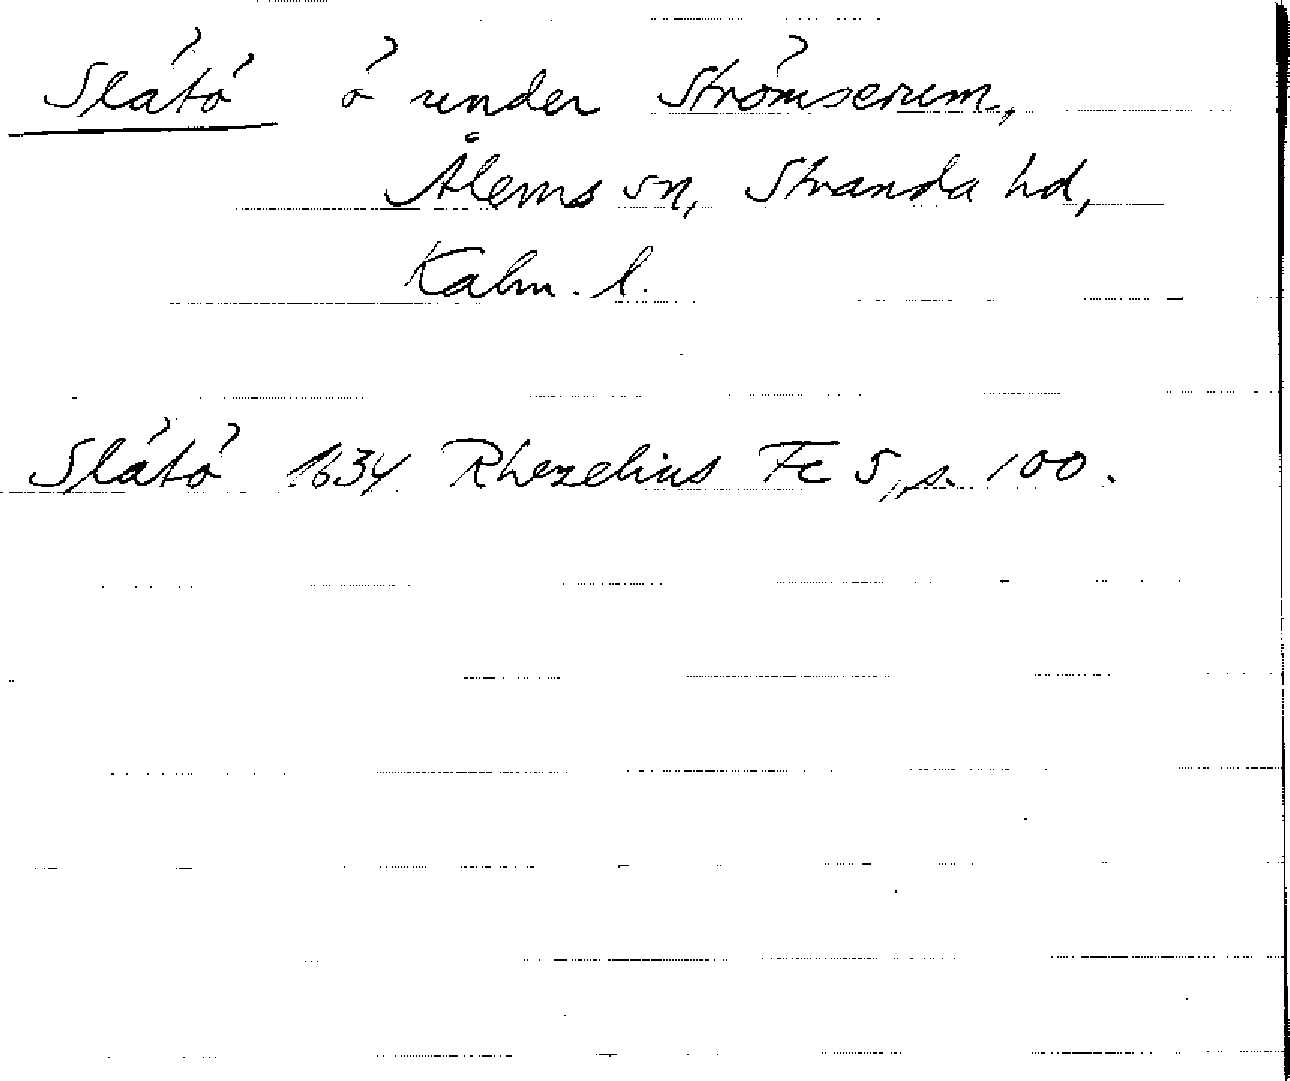 Slätö ö under Strömserum,
Ålems sn, Stranda hd,
Kalm. l.
Slätö 1634 Rhezelius Fc 5, s. 100.